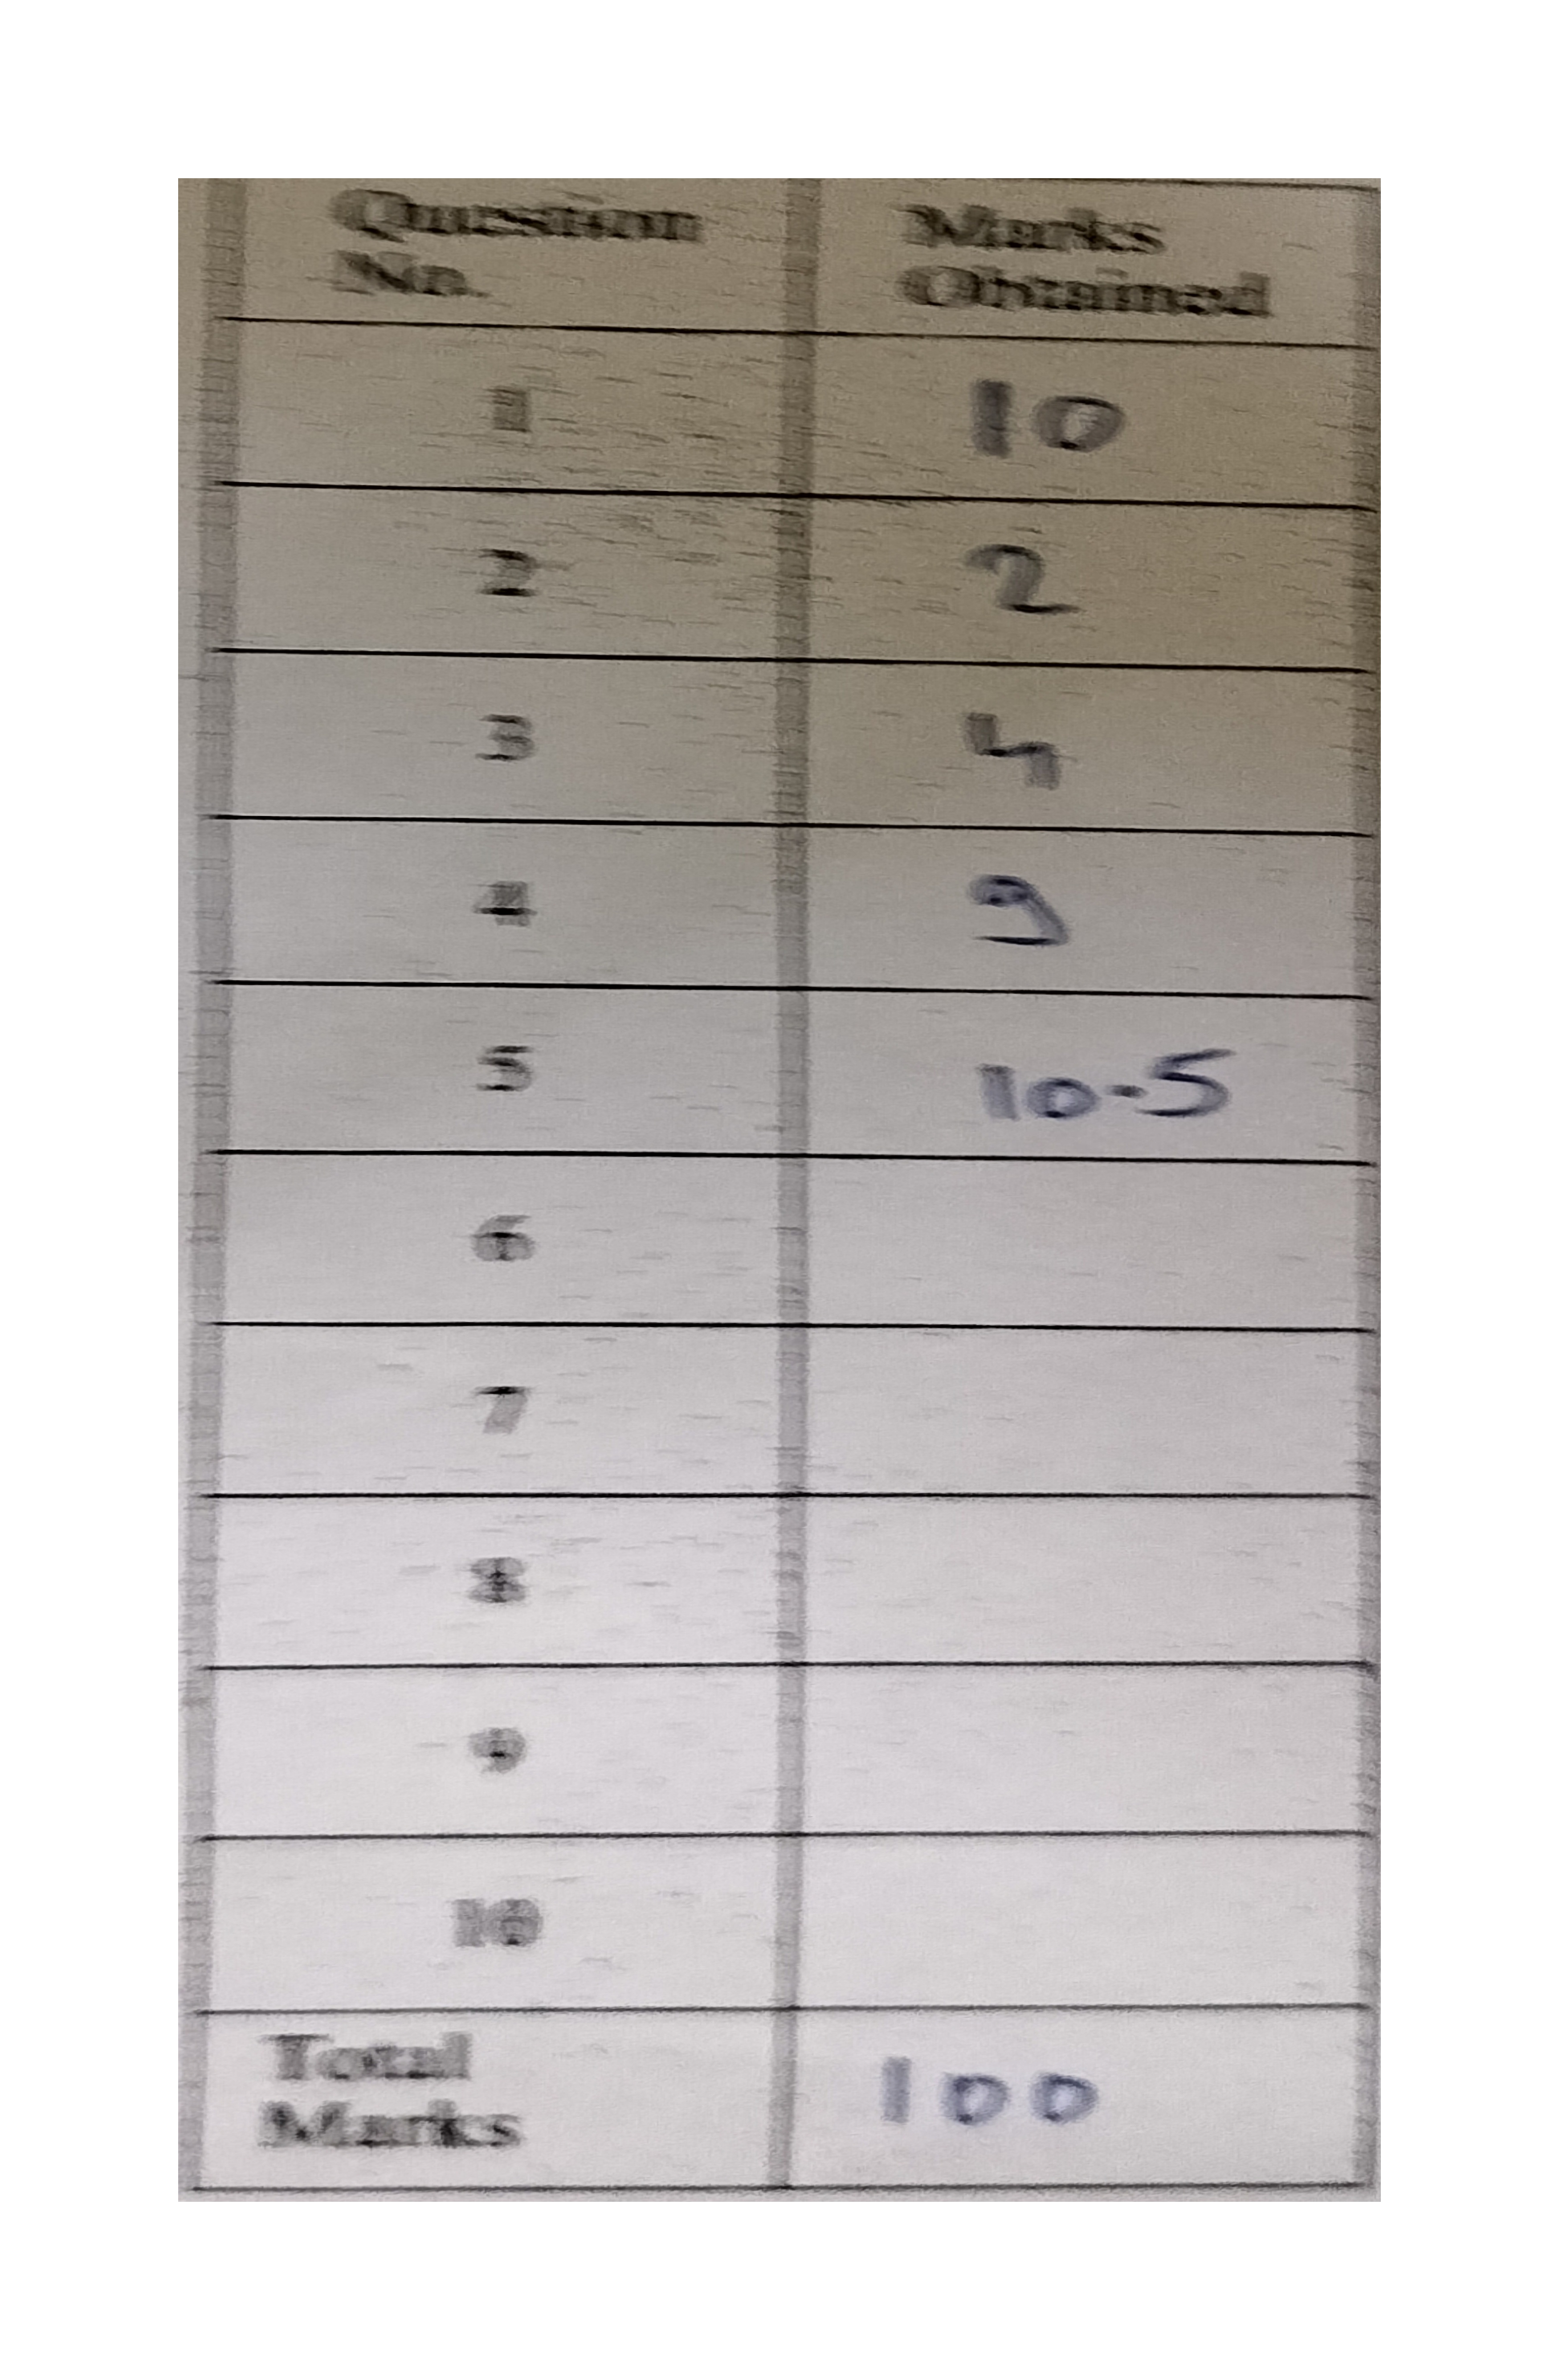 Question No. Marks Obtained
1 10
2 2
3 4
4 9
5 10.5
6
7
8
9
10
Total Marks 100